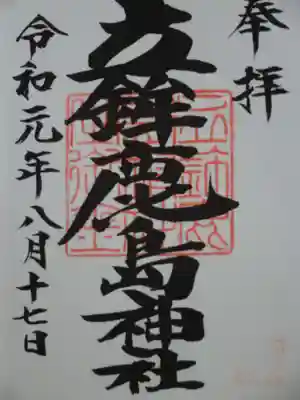 奉拝
立鉾鹿島神社
令和元年八月十七日